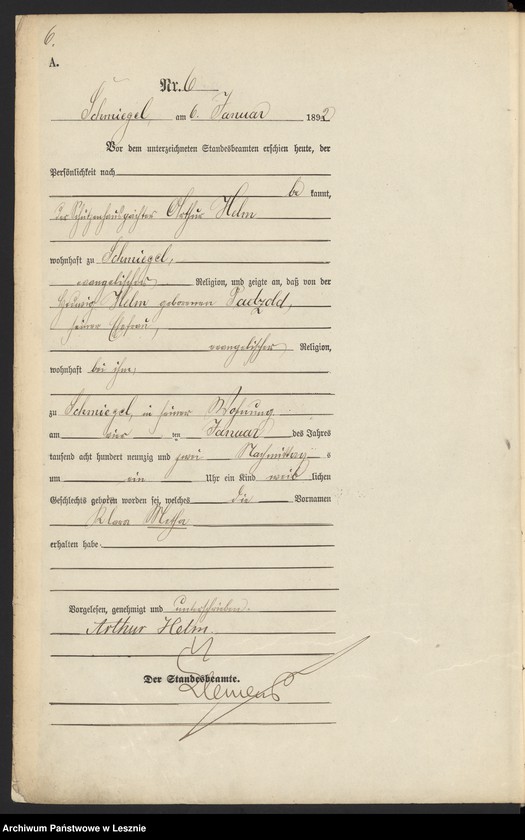 6.
A.
Nr. 6
Schmiegel, am 6. Januar 1892
Vor dem unterzeichneten Standesbeamten erschien heute, der
Persönlichkeit nach
be kannt,
der Schützenhauspächter Arthur Helm
wohnhaft zu Schmiegel,
evangelischer Religion, und zeigte an, daß von der
Hedwig Helm geborenen Paetzold,
seiner Ehefrau,
evangelischer Religion,
wohnhaft bei ihm,
zu Schmiegel, in seiner Wohnung
am vier ten Januar des Jahres
tausend acht hundert neunzig und zwei Nachmittag s
um ein Uhr ein Kind weib lichen
Geschlechts geboren worden sei, welches die Vornamen
Klara
erhalten habe.
Vorgelesen, genehmigt und unterschrieben.
Arthur Helm.
Der Standesbeamte.
Clemens
Archiwum Państwowe w Lesznie